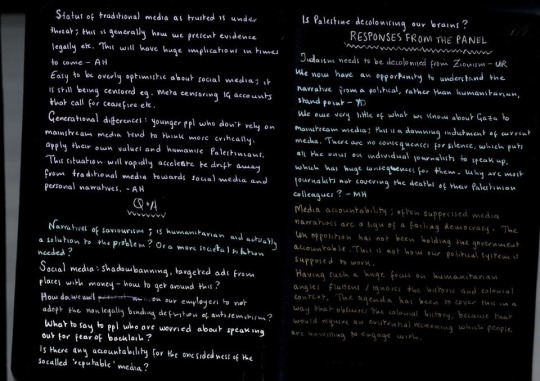 Status of traditional media as trusted is under
threat; this is generally how we present evidence
legally etc. This will have huge implications in times
to come - AH
Easy to be overly optimistic about social media; it
is still being censored eg. Meta censoring IG accounts
that call for ceasefire etc.
Generational differences: younger ppl who don't rely on
mainstream media tend to think more critically,
apply their own values and humanise Palestinians.
This situation will rapidly accelerate the drift away
from traditional media towards social media and
personal narratives. - AH
Q+A
Narratives of saviourism; is humanitarian aid actually
a solution to the problem? Or a more societal solution
needed?
Social media: shadowbanning, targeted ads from
places with money - how to get around this?
How do we on our employers to not
adopt the non legally binding definition of antisemitism?
What to say to ppl who are worried about speaking
out for fear of backlash?
Is there any accountability for the onesidedness of the
socalled 'reputable' media?
Is Palestine decolonising our brains?
RESPONSES FROM THE PANEL
Judaism needs to be decolonised from Zionism -
We now have an opportunity to understand the
narrative from a political, rather than humanitarian,
stand point -
We owe very little of what we know about Gaza to
mainstream media; this is a damning indictment of current
media. There are no consequences for silence, which puts
all the onus on individual journalists to speak up,
which has huge consequences for them. Why are most
journalists not covering the deaths of their Palestinian
colleagues? - MH
Media accountability; often suppressed media
narratives are a sign of a failing democracy. The
UK opposition has not been holding the government
accountable. This is not how our political system is
supposed to work.
Having such a huge focus on humanitarian
angles flattens / ignores the historic and colonial
context. The agenda has been to cover this in a
way that obscures the colonial history, because that
would require an existential reckoning which people
are unwilling to engage with.